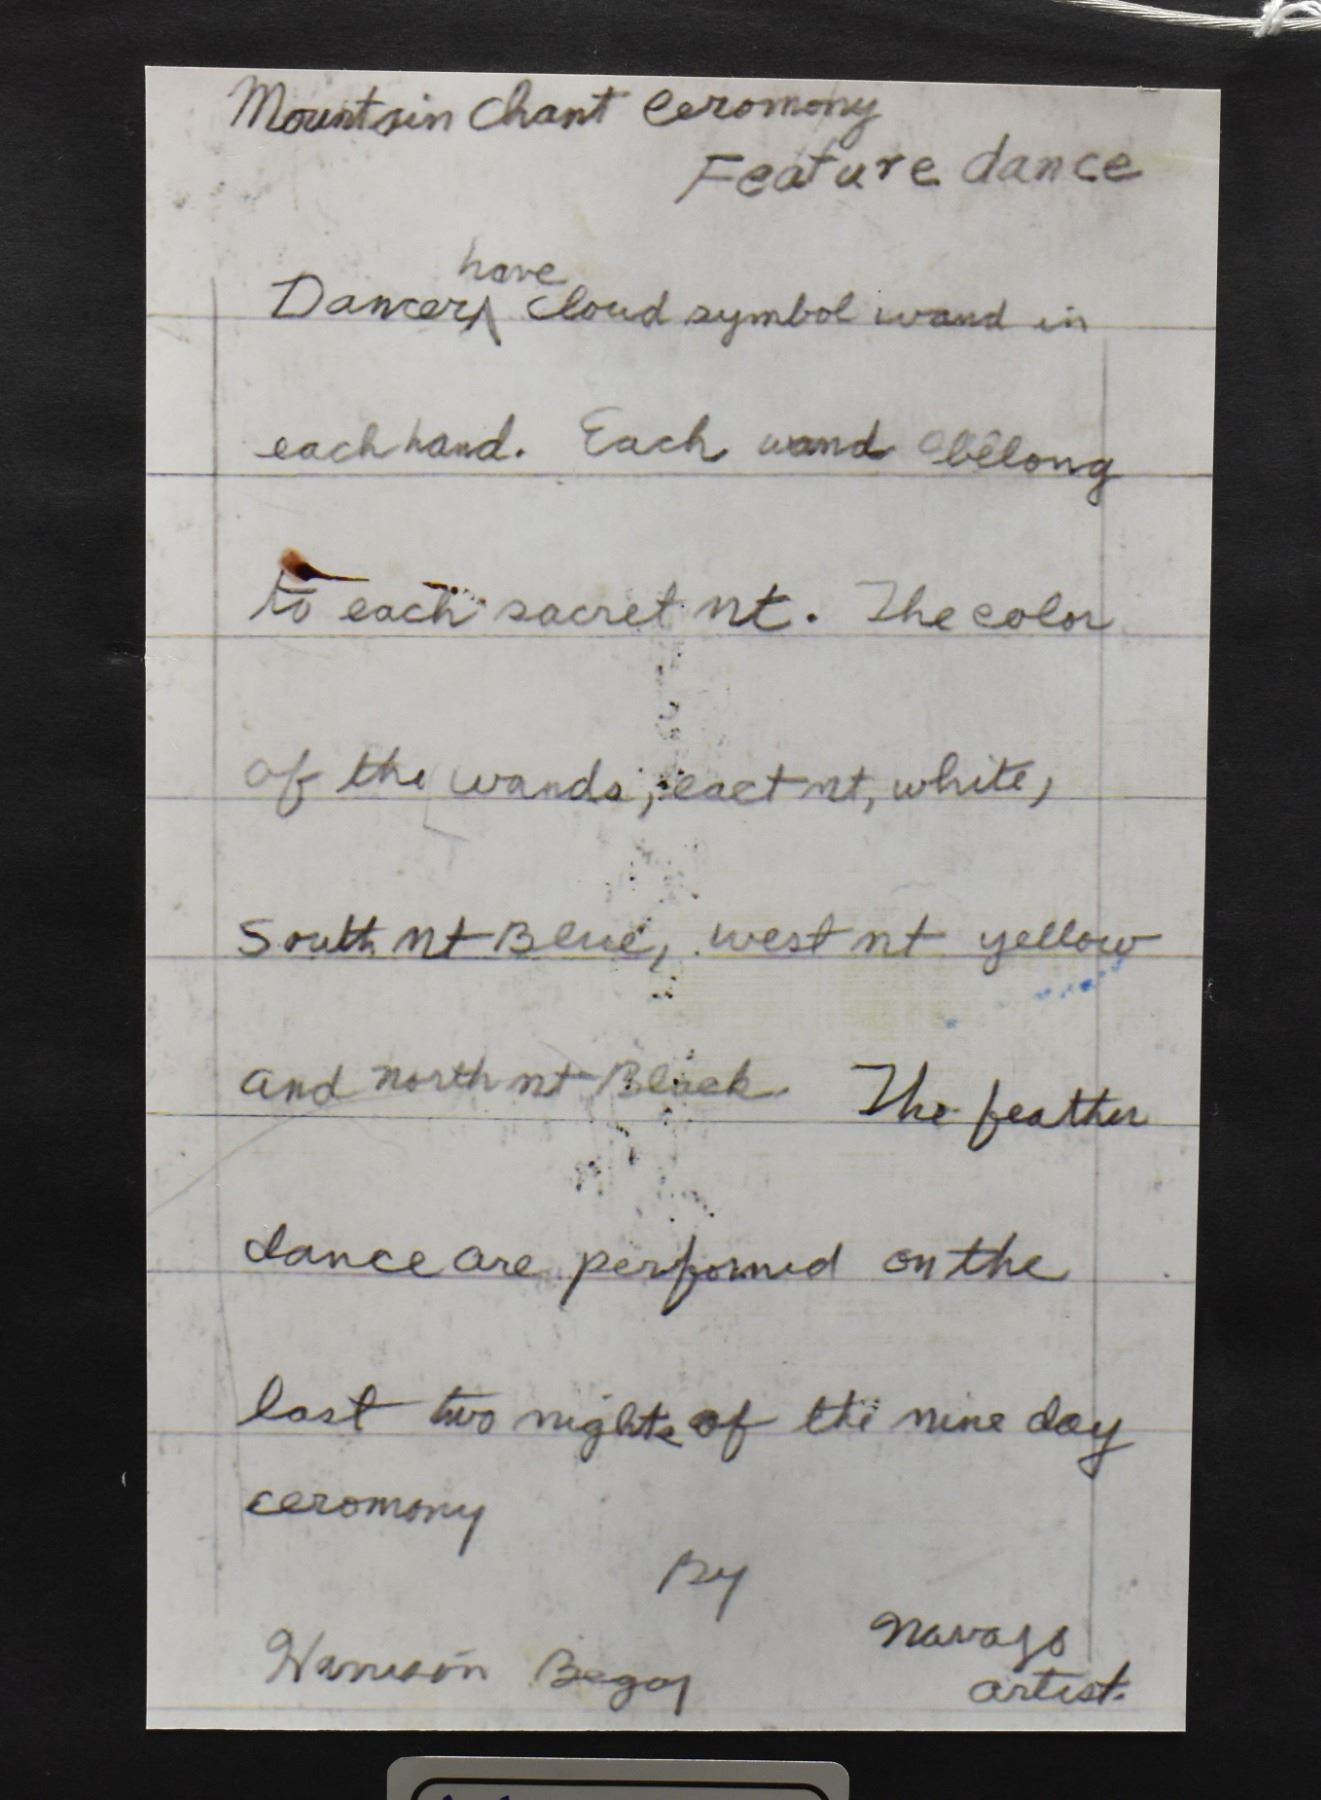 Mountain Chant Ceromony
Feature dance
have
Dancers cloud symbol wand in
each hand. Each wand belong
to each sacret mt. The color
of the wands; east mt, white,
South mt Blue, west mt yellow
and north mt Black. The feather
dance are performed on the
last two nights of the nine day
ceromony
By
Harrison Begay
Navajo
artist.